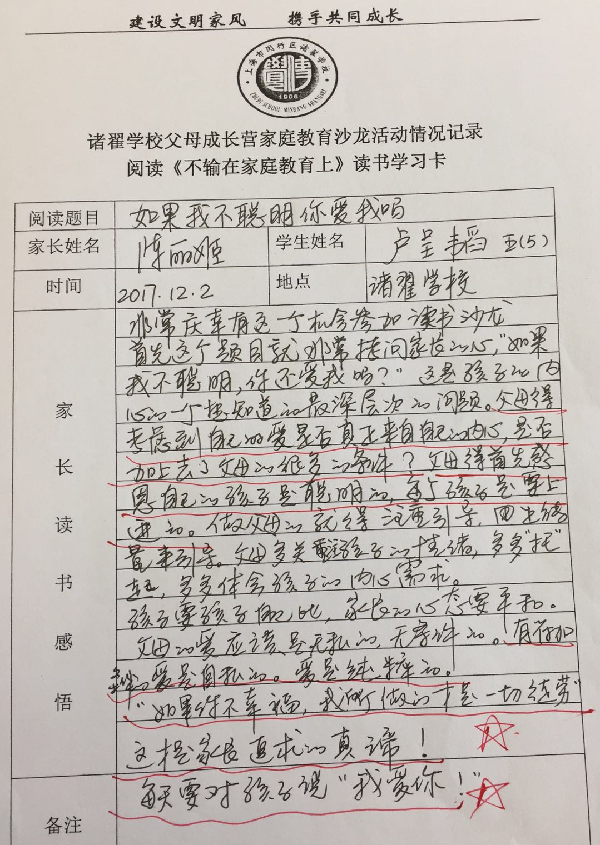 建设文明家风 携手共同成长
1906
诸翟学校父母成长营家庭教育沙龙活动情况记录
阅读《不输在家庭教育上》读书学习卡
阅读题目 如果我不聪明你爱我吗
家长姓名 陈丽姬 学生姓名 卢呈韬 五(5)
时间 2017.12.2 地点 诸翟学校
家长读书感悟
非常庆幸有这一个机会参加读书沙龙
首先这个题目就非常拷问家长的心,"如果
我不聪明,你还爱我吗?"这是孩子的内
心的一个想知道的最深层次的问题。父母得
考虑到自己的爱是否真正来自自己的内心,是否
加上去了父母的很多的条件?父母得首先感
恩自己的孩子是聪明的,每个孩子是要上
进的。做父母的就得注重引导,
来引导。父母多关注孩子的情绪,多多"抱"
抱,多多体会孩子的内心需求。
孩子要孩子,家长的心态要平和。
父母的爱应该是无私的,无条件的。有附加
条件的爱是自私的。爱是纯粹的。
"如果你不幸福,我所做的才是一切徒劳"
这才是家长追求的真谛!
备注 每天要对孩子说"我爱你!"